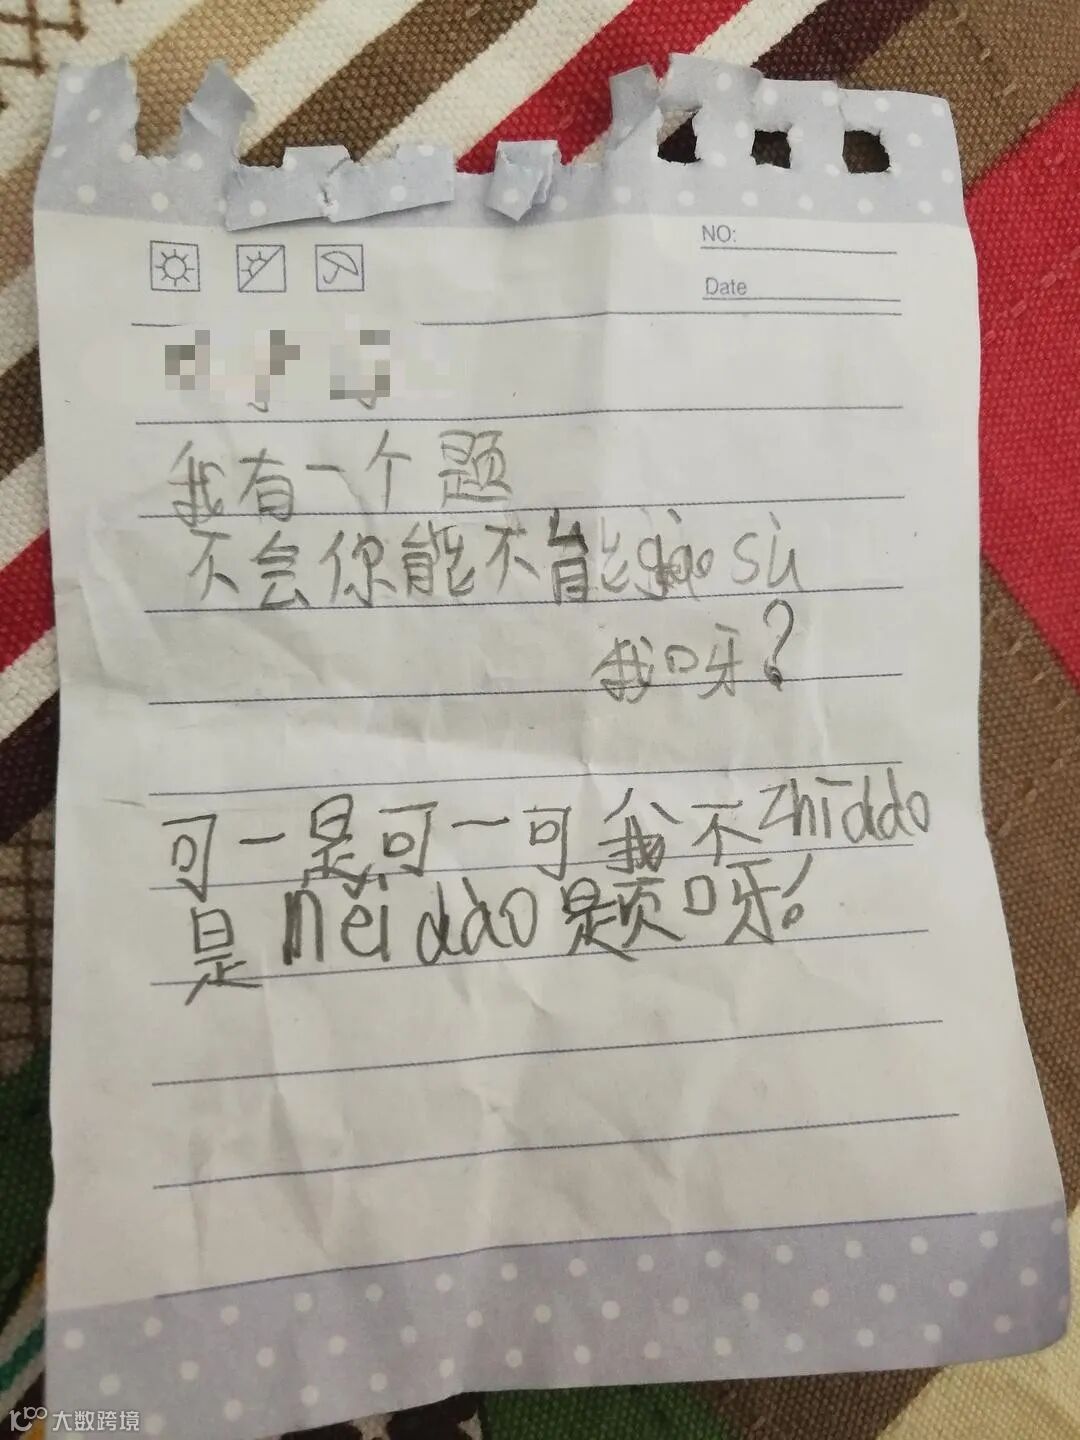 NO:
Date
我有一个题
不会你能不能gào sù
我呀?
可一是可一可我不zhīdào
是něi dào题呀!
大数跨境